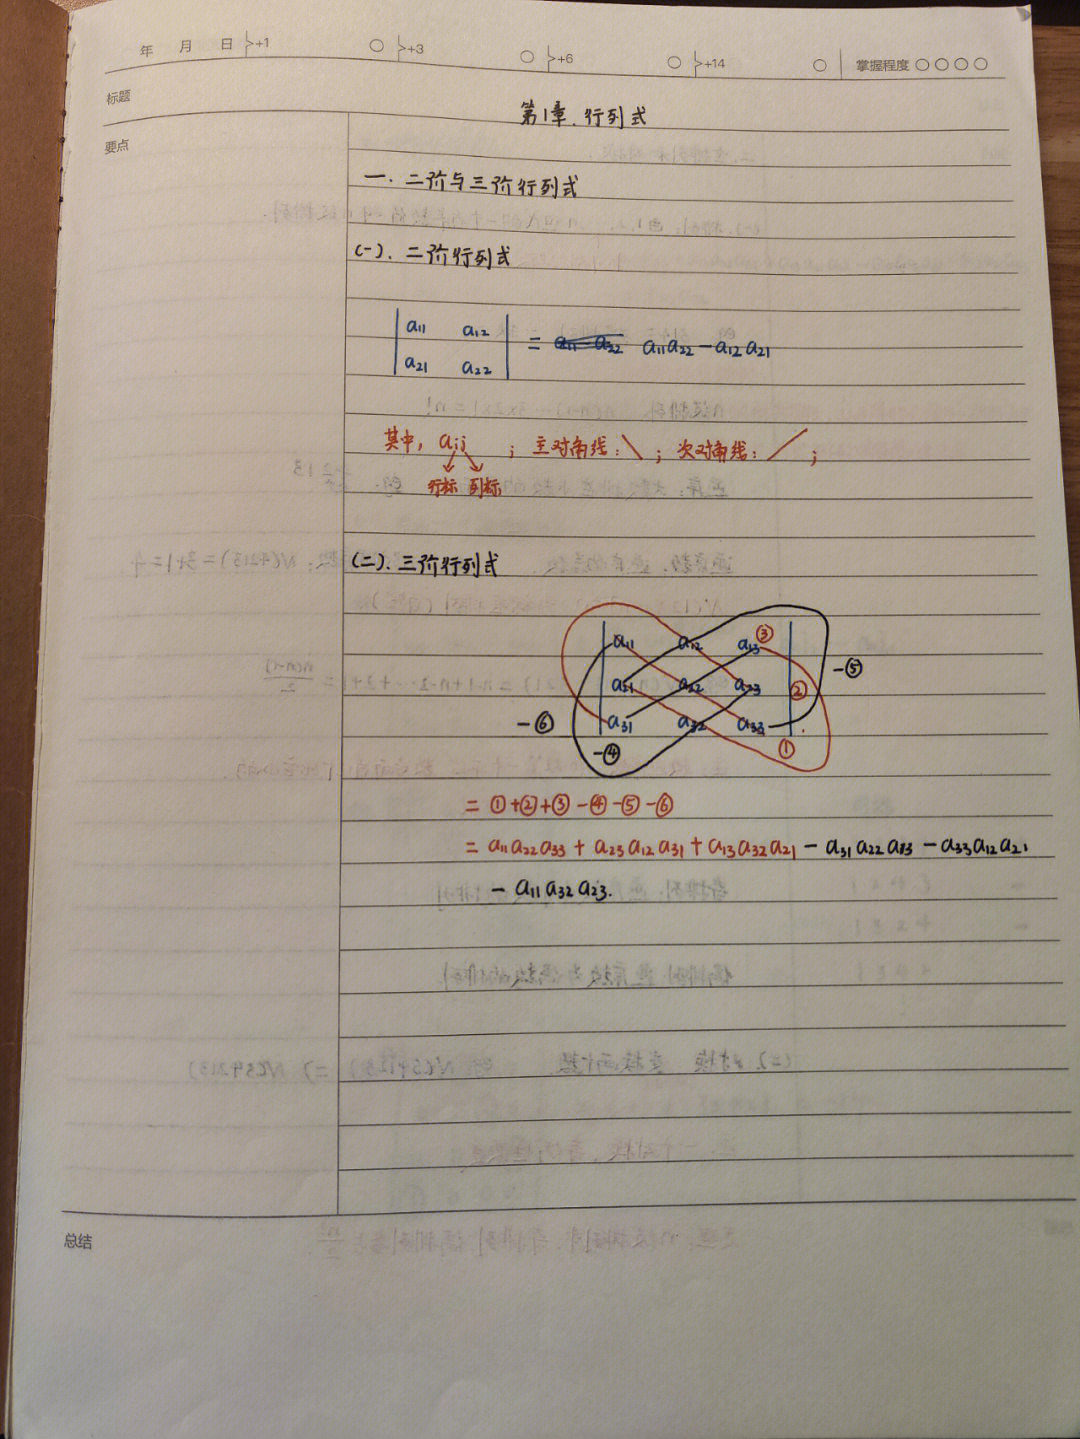 年 月 日 +1 +3 +6 +14 掌握程度
标题
第1章. 行列式
要点
一. 二阶与三阶行列式
(一). 二阶行列式
a11 a12
a21 a22
= a11 - a22 a11a22 - a12a21
其中, aij ; 主对角线: \ ; 次对角线: / ;
行标 列标
(二). 三阶行列式
a11 a12 a13 ③
a21 a22 a23 ② -⑤
-⑥ a31 a32 a33
-④ ①
= ①+②+③-④-⑤-⑥
= a11a22a33 + a23a12a31 + a13a32a21 - a31a22a13 - a33a12a21
- a11a32a23.
总结